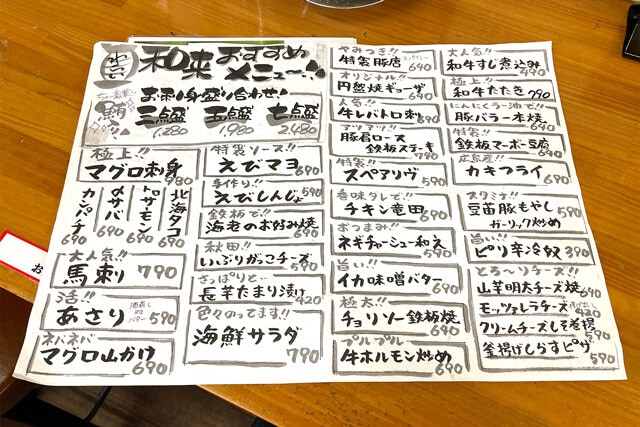 和来おすすめ
メニュー!!
鮪
お刺身盛り合わせ!
三点盛 五点盛 七点盛
1,280 1,980 2,480
極上!!
マグロ刺身
980
カンパチ 〆サバ トロサーモン 北海タコ
690 590 690 690
大人気!!
馬刺 790
活!!
あさり 酒蒸し or バター 590
ネバネバ
マグロ山かけ
690
特製ソース!!
えびマヨ
690
手作り!!
えびしんじょ 590
鉄板で!!
海老のお好み焼
690
秋田!!
いぶりがっこチーズ
590
さっぱりと…
長芋たまり漬け
420
色々のってます!!
海鮮サラダ
790
やみつき!!
特製豚店 スパイシー
690
オリジナル!!
円盤焼ギョーザ
640
人気!!
牛レバトロ刺
690
アツアツ!!
豚肩ロース
鉄板ステーキ
790
特製!!
スペアリブ
590
香味タレで!!
チキン竜田
690
おつまみ!!
ネギチャーシュー和え
590
旨い!!
イカ味噌バター
690
極太!!
チョリソー鉄板焼
640
プルプル
牛ホルモン炒め
690
大人気!!
和牛すじ煮込み
490
極上!!
和牛たたき
790
にんにくラー油で!!
豚バラ一本焼
690
特製!!
鉄板マーボー豆腐
690
広島産!!
カキフライ
690
スタミナ!!
豆苗豚もやし
ガーリック炒め
590
旨い!!
ピリ辛冷奴 390
とろ〜りチーズ!!
山芋明太チーズ焼
690
モッツァレラチーズ 揚げ出し
420
クリームチーズしそ春揚
590
釜揚げしらすピザ
590
お